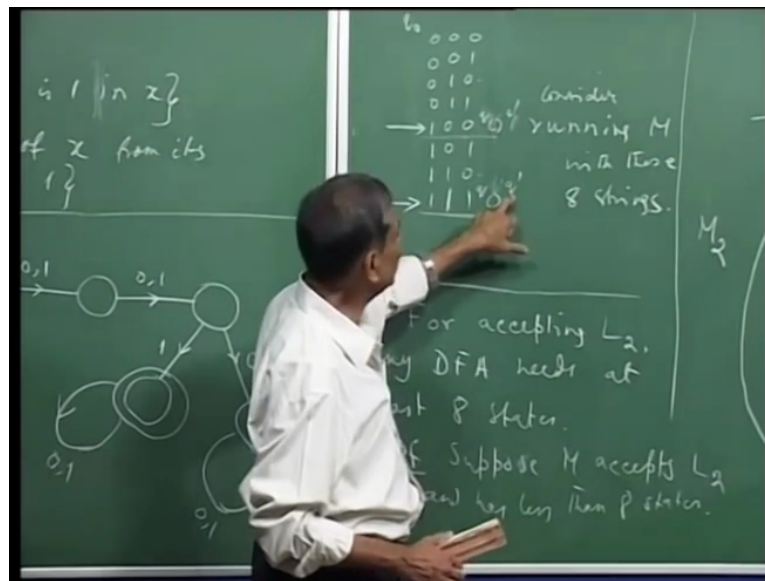 is 1 in x}
of x from its
1}
0,1
0,1
1
0,1
0,1
0 0 0
0 0 1
0 1 0
0 1 1
1 0 0 0
1 0 1
1 1 0
1 1 1 0
consider
running M
with these
8 strings.
For accepting L2,
any DFA needs at
8 states.
Suppose M accepts L2
and has less than 8 states.
M2